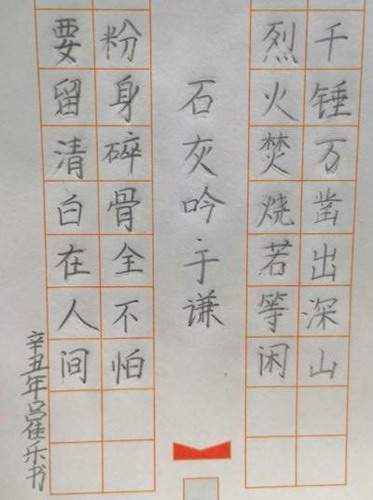 千锤万凿出深山
烈火焚烧若等闲
石灰吟于谦
粉身碎骨全不怕
要留清白在人间
辛丑年吕佳乐书